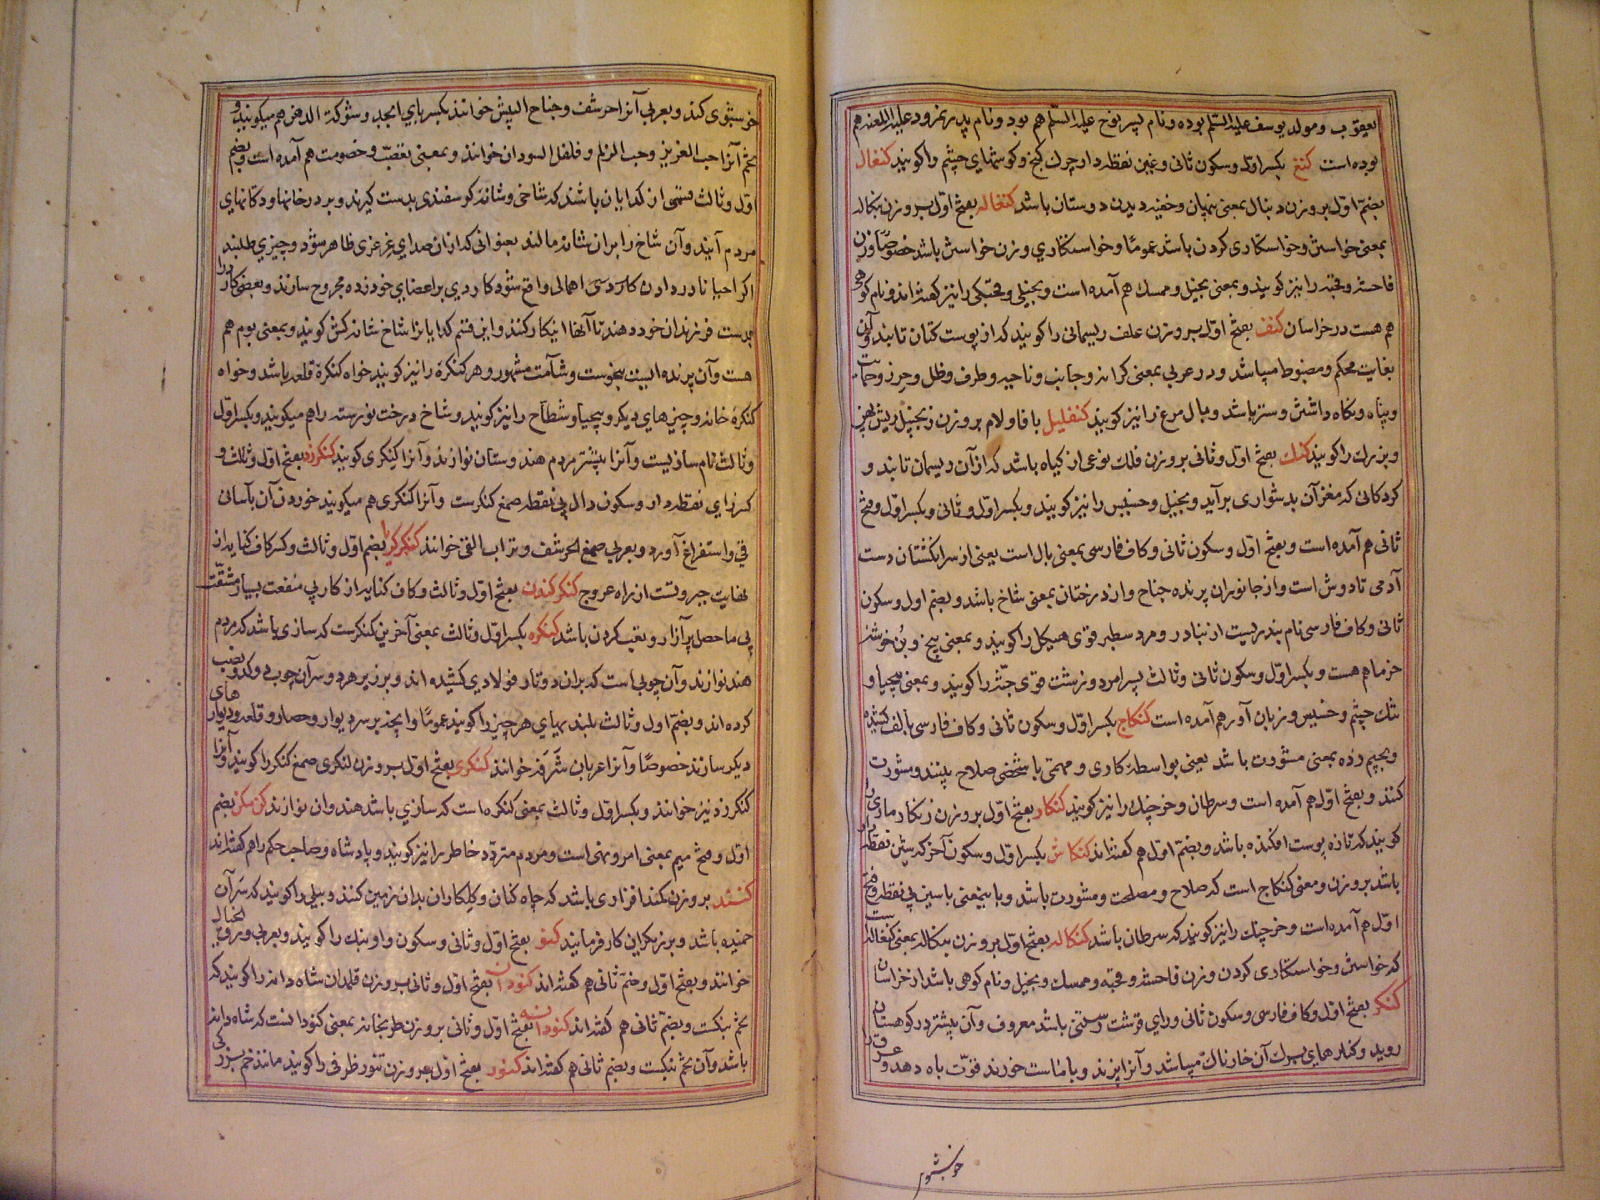 یعقوب و مولد یوسف علیه السلم بوده و نام پسر نوح علیه السلم هم بود و نام پدر نمرود علیه اللعنه هم
بوده است کنغ بکسر اول و سکون ثانی و غین نقطه دار چرک کنج و کوشهای چشم را کویند کنغال
بضم اول بر وزن دنبال بمعنی پنهان و خفیه دیدن دوستان باشد کنغاله بفتح اول بر وزن بنگاله
بمعنی خواستن و خواستکاری کردن باشد عموما و خواستکاری و زن خواستن باشد خصوصا و زن
فاحشه و قحبه را نیز کویند و بمعنی بخیل و ممسک هم آمده است و بخیلی و قحبکی را نیز کفته اند و نام کوهی
هم هست در خراسان کنف بفتح اول بر وزن علف ریسمانی را کویند که از پوست کتان تابند و آن
بغایت محکم و مضبوط میباشد و در عربی بمعنی کرانه و جانب و ناحیه و طرف و ظل و حرز و حمایت
و پناه و نگاه داشتن و ستر باشد و بال مرغ را نیز کویند کنفلیل با فا و لام بر وزن زنجبیل ریش پهن
و بزرک را کویند کنک بفتح اول و ثانی بر وزن فلک نوعی از کیاه باشد که از آن ریسمان تابند و
کردکانی که مغز آن بدشواری برآید و بخیل و خسیس را نیز کویند و بکسر اول و ثانی و بکسر اول و فتح
ثانی هم آمده است و بفتح اول و سکون ثانی و کاف فارسی بمعنی بال است یعنی از سر انکشتان دست
آدمی تا دوش است و از جانوران پرنده جناح و از درختان بمعنی شاخ باشد و بضم اول و سکون
ثانی و کاف فارسی نام بندریست از بنادر و مرد سطبر قوی هیکل را کویند و بمعنی بیخ و بن خوشه
خرما هم هست و بکسر اول و سکون ثانی و ثالث پسر امرد و زشت قوی جثه را کویند و بمعنی بیحیا و
تنک چشم و خسیس و زبان آور هم آمده است کنکاج بکسر اول و سکون ثانی و کاف فارسی بالف کشیده
و بجیم زده بمعنی مشورت باشد یعنی بواسطه کاری و مهمی با شخصی صلاح بینند و مشورت
کنند و بفتح اول هم آمده است و سرطان و خرچنک را نیز کویند کنکار بفتح اول بر وزن زنکار ماری را
کویند که تازه پوست افکنده باشد و بضم اول هم کفته اند کنکاش بکسر اول و سکون آخر که شین نقطه دار
باشد بر وزن و معنی کنکاج است که صلاح و مصلحت و مشورت باشد و باینمعنی با سین بی نقطه و فتح
اول هم آمده است و خرچنک را نیز کویند که سرطان باشد کنکاله بفتح اول بر وزن بنکاله بمعنی کنغاله است
که خواستن و خواستکاری کردن و زن فاحشه و قحبه و ممسک و بخیل و نام کوهی باشد از خراسان
کنکر بفتح اول و کاف فارسی و سکون ثانی و رای قرشت رستنی باشد معروف و آن بیشتر در کوهستان
روید و کناره های برک آن خارناک میباشد و آنرا پزند و با ماست خورند قوت باه دهد و عرق را
خوشبوی
خوشبوی کند و بعربی آنرا حرشف و جناح البپش خوانند بکسر بای ابجد و شوکة الدهن هم میکویند و
تخم آنرا حب العزیز و حب الزلم و فلفل السودان خوانند و بمعنی تعصب و خصومت هم آمده است و بضم
اول و ثالث قسمی از کدایان باشند که شاخی و شانه کوسفندی بدست کیرند و بر در خانها و دکانهای
مردم آیند و آن شاخ را بر آن شانه مالند بعنوانی که از آن صدای غرغری ظاهر شود و چیزی طلبند
اکر احیانا در دادن کار دسی اهمالی واقع شود کاردی بر اعضای خود زده مجروح سازند و بعضی کارد را
بدست فرزندان خود دهند تا آنها اینکار کنند و این قسم کدایانرا شاخ شانه کش کویند و بمعنی بوم هم
هست و آن پرنده ایست بنحوست و شآمت مشهور و هر کنکره را نیز کویند خواه کنکره قلعه باشد و خواه
کنکره خانه و چیزهای دیکر و بیحیا و شطاح را نیز کویند و شاخ درخت نورسته را هم میکویند و بکسر اول
و ثالث نام سازیست و آنرا بیشتر مردم هندوستان نوازند و آنرا کنکری کویند کنکرزد بفتح اول و ثالث و
کسر زای نقطه دار و سکون دال بی نقطه صمغ کنکرست و آنرا کنکری هم میکویند خوردن آن بآسانی
قی و استفراغ آورد و بعربی صمغ الحرشف و تراب القی خوانند کنکر کریا بضم اول و ثالث و کسر کاف کنایه از
نهایت جبروتست از راه عروج کنکر کندن بفتح اول و ثالث و کاف کنایه از کار بی منفعت بسیار مشقت
بی ماحصل پرآزار و تعب کردن باشد کنکره بکسر اول و ثالث بمعنی آخرین کنکرست که سازی باشد که مردم
هند نوازند و آن چوبی است که بر آن دو تار فولادی کشیده اند و بر زیر هر دو سر آن چوب دو کدو نصب
کرده اند و بضم اول و ثالث بلندیهای هر چیز را کویند عموما و آنچه بر سر دیوار و حصار و قلعه و دیوارهای
دیکر سازند خصوصا و آنرا عربان شرفه خوانند کنکری بفتح اول بر وزن لنکری صمغ کنکر را کویند و آنرا
کنکرزد نیز خوانند و بکسر اول و ثالث بمعنی کنکره است که سازی باشد هندوان نوازند کن مکن بضم
اول و فتح میم بمعنی امر و نهی است و مردم متردد خاطر را نیز کویند و پادشاه و صاحب حکم را هم کفته اند
کنند بر وزن کمند افزاری باشد که چاه کنان و کلکاران بدان زمین کنند و بیلی را کویند که سر آن
خمیده باشد و برزیکران کار فرمایند کنو بفتح اول و ثانی و سکون واو بنک را کویند و بعربی ورق الخیال
خوانند و بفتح اول و ضم ثانی هم کفته اند کنودان بفتح اول و ثانی بر وزن قلمدان شاه دانه را کویند که
تخم بنکست و بضم ثانی هم کفته اند کنودانه بفتح اول و ثانی بر وزن طربخانه بمعنی کنودانست که شاه دانه
باشد و آن تخم بنکست و بضم ثانی هم کفته اند کنور بفتح اول بر وزن تنور ظرفی را کویند مانند خم بزرکی